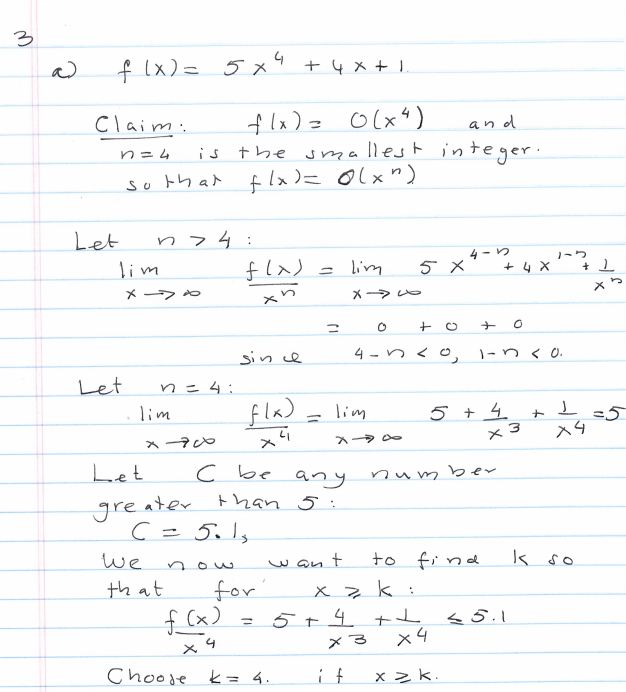 3
a) f(x) = 5x⁴ + 4x + 1.
Claim: f(x) = O(x⁴) and
n = 4 is the smallest integer.
so that f(x) = O(xⁿ)
Let n > 4 :
lim f(x)/xⁿ = lim 5x⁴⁻ⁿ + 4x¹⁻ⁿ + 1/xⁿ
x → ∞ x → ∞
= 0 + 0 + 0
since 4-n < 0, 1-n < 0.
Let n = 4 :
lim f(x)/x⁴ = lim 5 + 4/x³ + 1/x⁴ = 5
x → ∞ x → ∞
Let C be any number
greater than 5 :
C = 5.1,
We now want to find k so
that for x ⩾ k :
f(x)/x⁴ = 5 + 4/x³ + 1/x⁴ ≤ 5.1
Choose k = 4. if x ≥ k.